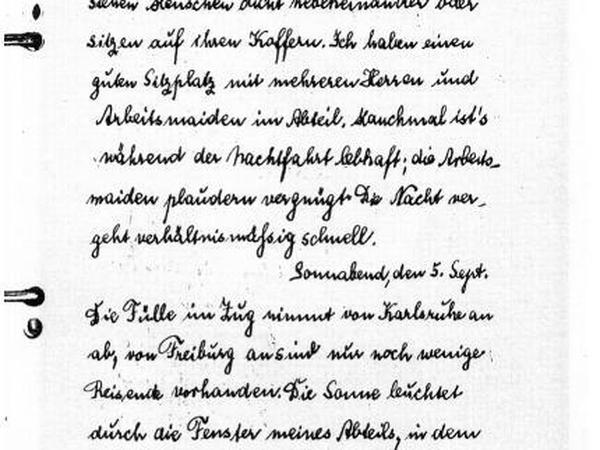 stehen Menschen dicht nebeneinander oder
sitzen auf ihren Koffern. Ich haben einen
guten Sitzplatz mit mehreren Herren und
Arbeitsmaiden im Abteil. Manchmal ist's
während der Nachtfahrt lebhaft; die Arbeits-
maiden plaudern vergnügt. Die Nacht ver-
geht verhältnismäßig schnell.
Sonnabend, den 5. Sept.
Die Fülle im Zug nimmt von Karlsruhe an
ab, von Freiburg an sind nur noch wenige
Reisende vorhanden. Die Sonne leuchtet
durch die Fenster meines Abteils, in dem